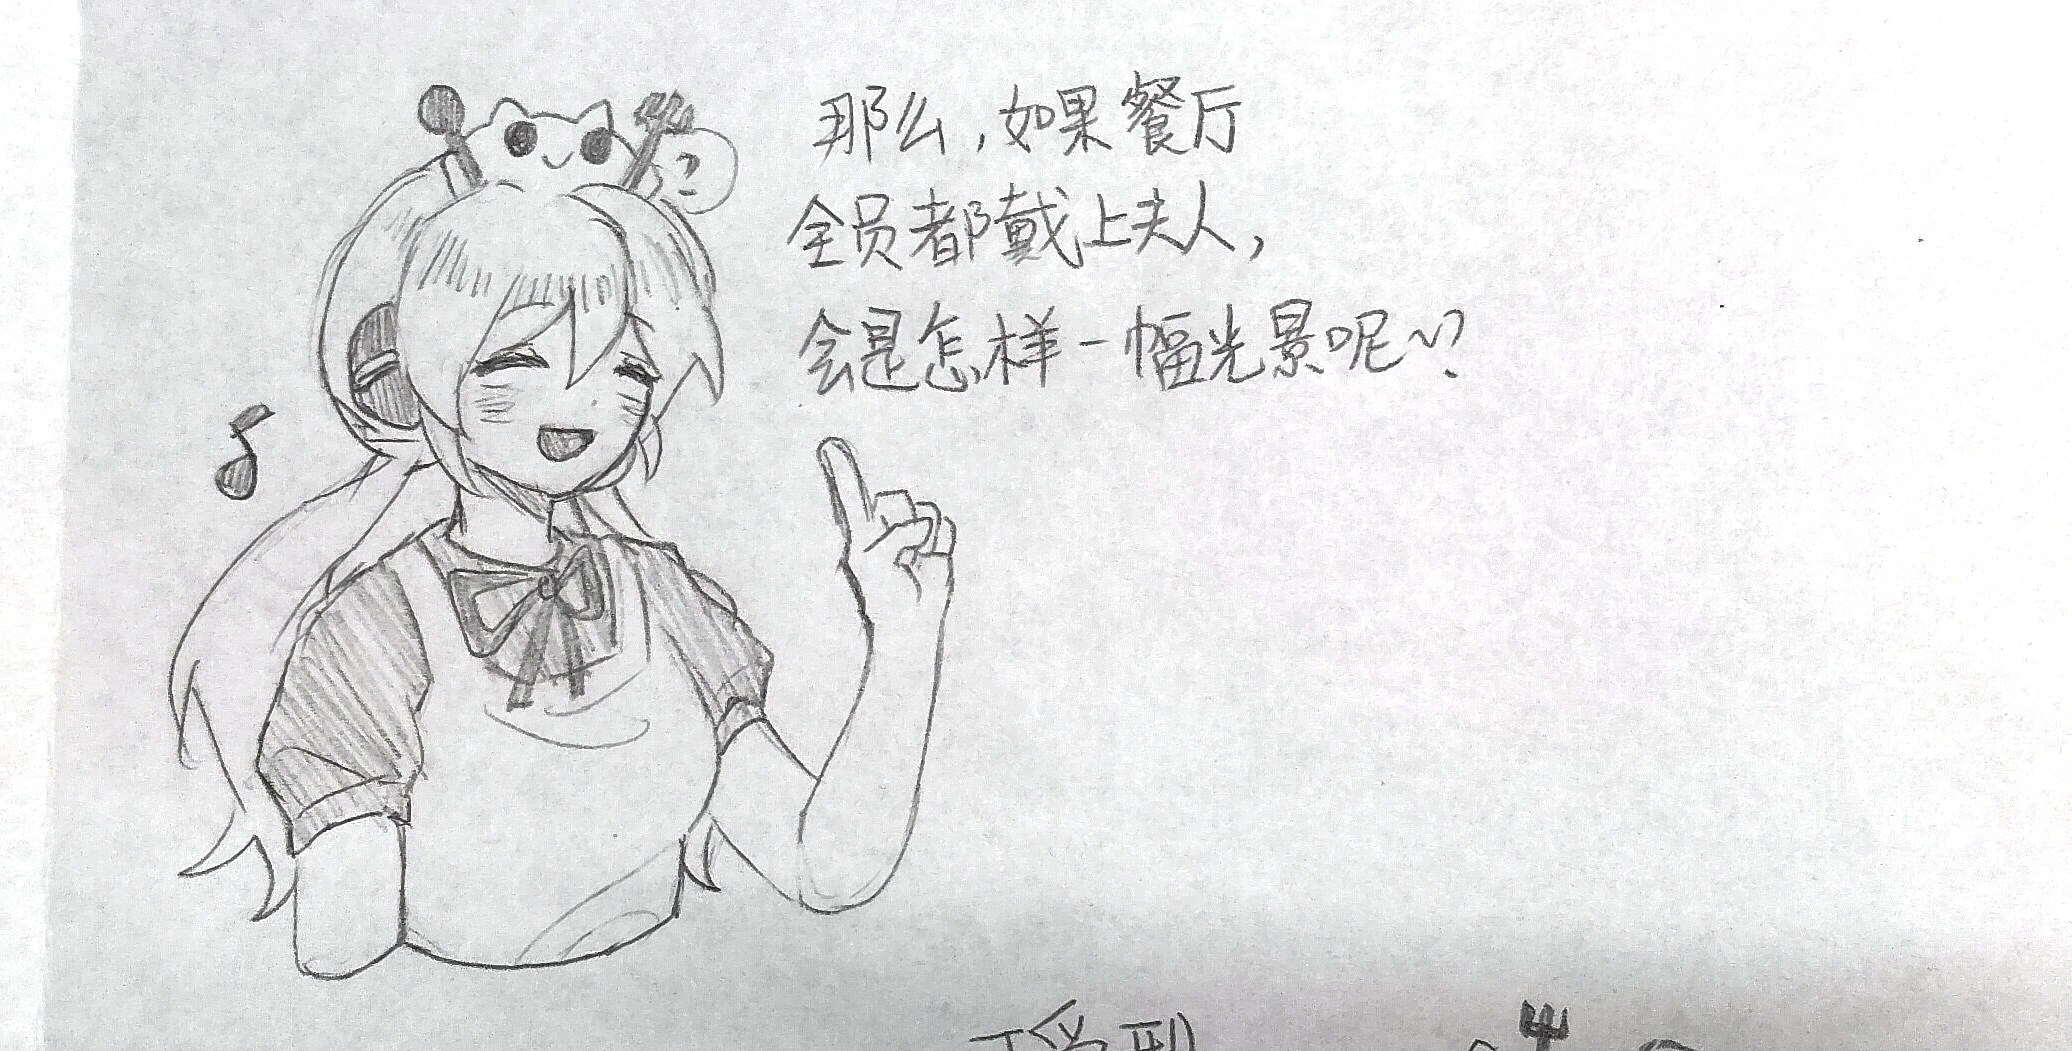 那么，如果餐厅
全员都戴上夫人，
会是怎样一幅光景呢~？